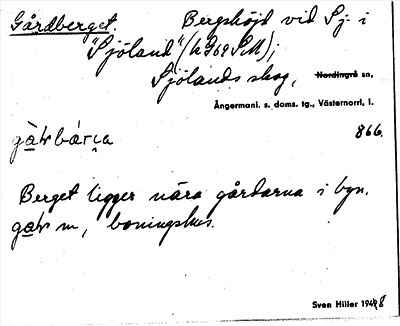 Gårdberget. Bergshöjd vid Sj. i
"Sjöland" (h 969 SM);
Sjölands skog, Nordingrå sn,
Ångermanl. s. doms. tg., Västernorrl, l.
866.
Berget ligger nära gårdarna i byn.
m, boningshus.
Sven Hiller 1948